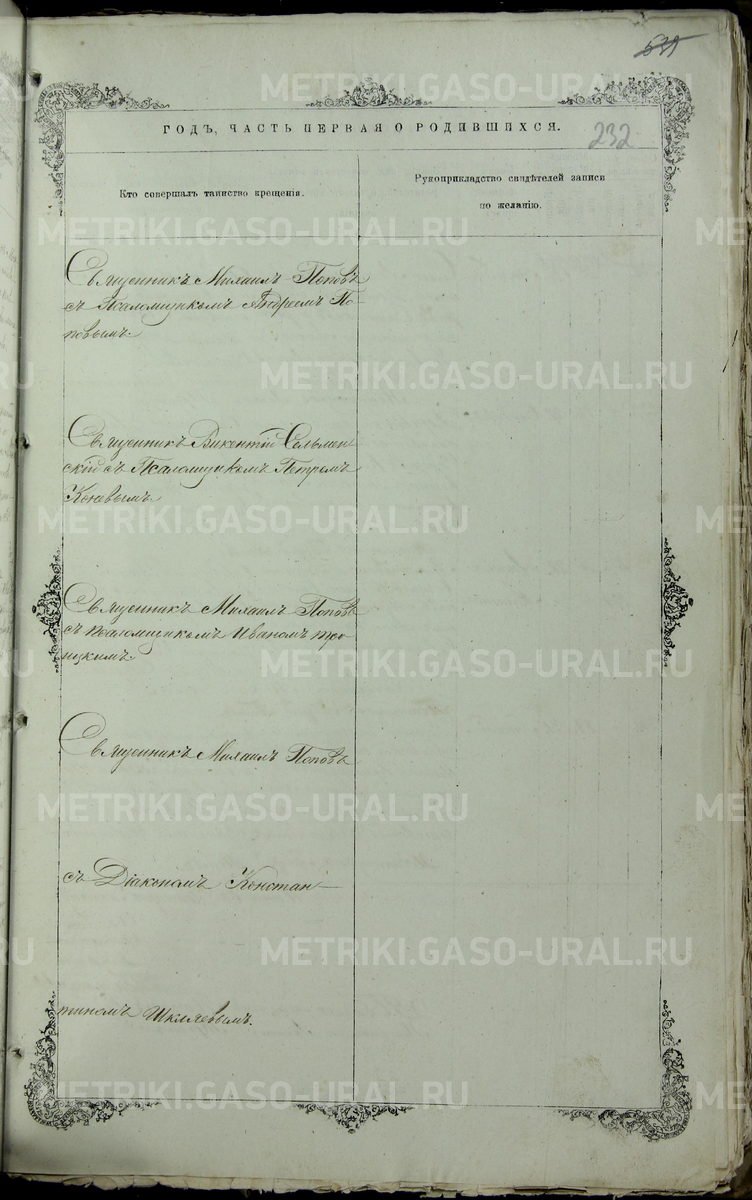 539
ГОДЪ, ЧАСТЬ ПЕРВАЯ О РОДИВШИХСЯ.
232
Кто совершалъ таинство крещенія.
Рукоприкладство свидѣтелей записи
по желанію.
Священникъ Михаилъ Поповъ
съ Псаломщикомъ Андреемъ По-
повымъ.
Священникъ Викентій Сельмен
скій съ Псаломщикомъ Петромъ
Коневымъ.
Священникъ Михаилъ Поповъ
съ псаломщикомъ Иваномъ Тро
ицкимъ.
Священникъ Михаилъ Поповъ
съ Діакономъ Констан-
тиномъ Шкляевымъ.
METRIKI.GASO-URAL.RU